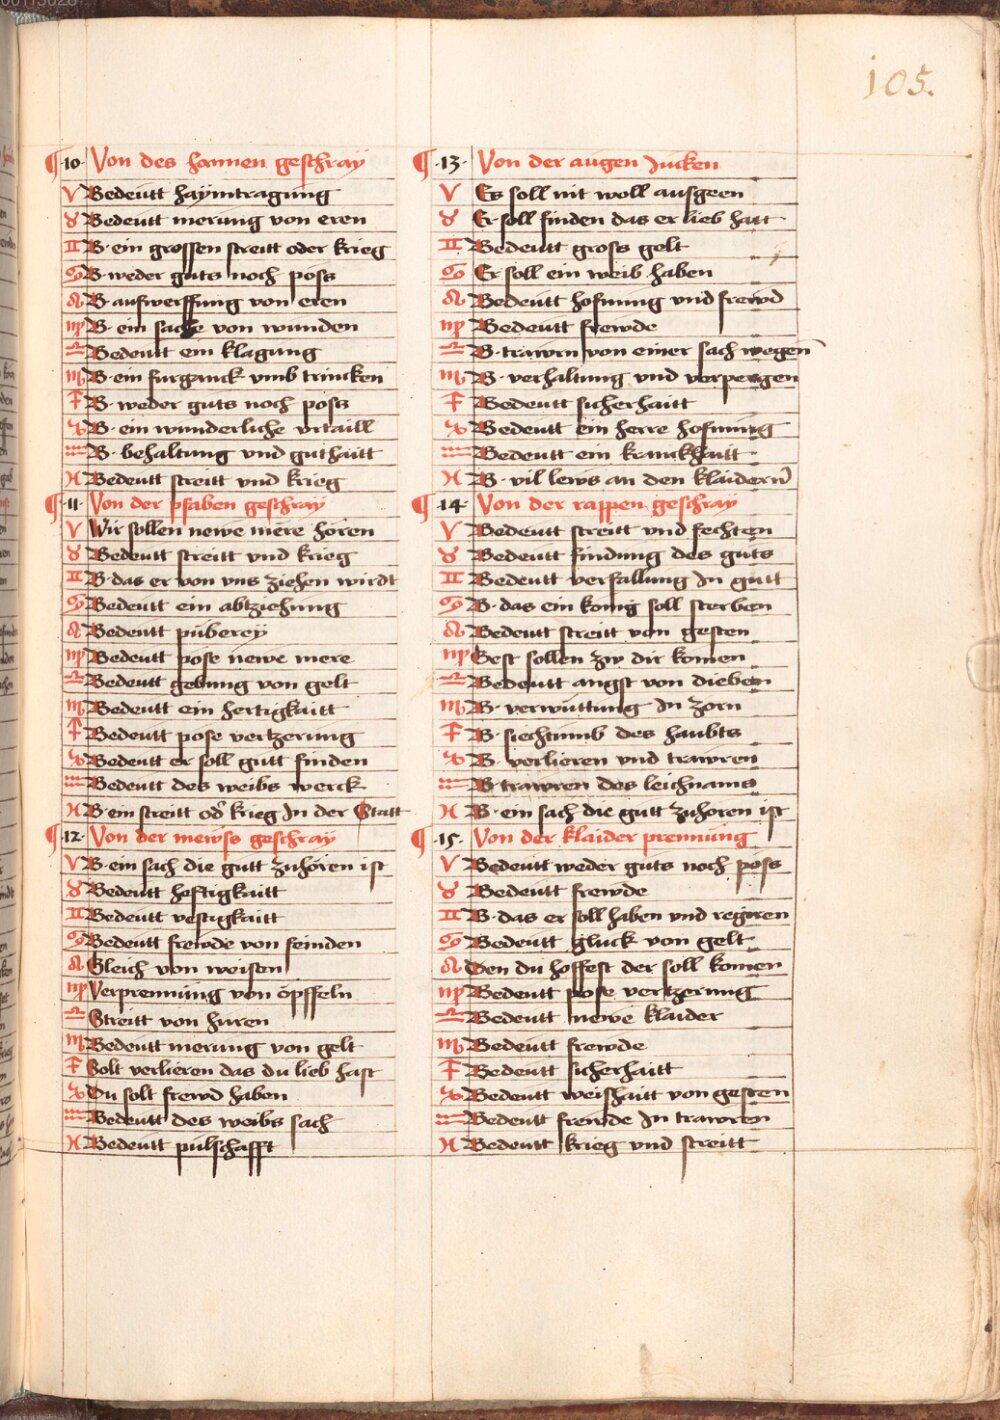 105.
¶ ·10· Von des hannen geschray
♈ Bedeutt haymtragung
♉ Bedeutt merung von eren
♊ B· ein grossen streitt oder krieg
♋ B· weder guts noch poss
♌ B· aufwerffung von eren
♍ B· ein sache von wunden
♎ Bedeutt ein klagung
♏ B· ein furganck vmb trincken
♐ B· weder guts noch poss
♑ B· ein wunderliche vrtaill
♒ B· behaltung vnd guthaitt
♓ Bedeutt streitt vnd krieg
¶ ·11· Von der pfaben geschray
♈ Wir sollen newe mere horen
♉ Bedeutt streitt vnd krieg
♊ B· das er von vns ziehen wirdt
♋ Bedeutt ein abtziehung
♌ Bedeutt puberey
♍ Bedeutt pose newe mere
♎ Bedeutt gebung von gelt
♏ Bedeutt ein hertigkaitt
♐ Bedeutt pose vertzerung
♑ Bedeutt er soll gutt finden
♒ Bedeutt des weibs werck
♓ B· ein streitt od' krieg In der Statt
¶ ·12· Von der mewss geschray
♈ B· ein sach die gutt zuhören ist
♉ Bedeutt hoftigkaitt
♊ Bedeutt vestigkaitt
♋ Bedeutt frewde von feinden
♌ Gleich von weisten
♍ Verprennung von öpffeln
♎ Streitt von huren
♏ Bedeutt merung von gelt
♐ Solt verlieren das du lieb hast
♑ Du solt frewd haben
♒ Bedeutt des weibs sach
♓ Bedeutt pulschafft
¶ ·13· Von der augen Jucken
♈ Es soll nit woll ausgeen
♉ Er soll finden das er lieb hatt
♊ Bedeutt gross gelt
♋ Er soll ein weib haben
♌ Bedeutt hofnung vnd frewd
♍ Bedeutt frewde
♎ B· trawrn von einer sach wegen
♏ B· verhaltung vnd verpergen
♐ Bedeutt sicherhaitt
♑ Bedeutt ein herre hofnung
♒ Bedeutt ein kranckhaitt
♓ B· vil lews an den klaidern
¶ ·14· Von der rappen geschray
♈ Bedeutt streitt vnd fechten
♉ Bedeutt findung des guts
♊ Bedeutt verfallung In gutt
♋ B· das ein konig soll sterben
♌ Bedeutt streitt von gesten
♍ Gest sollen zw dir komen
♎ Bedeutt angst von dieben
♏ B· verwuttung In zorn
♐ B· siechtumb des haubts
♑ B· verlieren vnd trawren
♒ B· trawren des leichnams
♓ B· ein sach die gutt zuhoren ist
¶ ·15· Von der klaider prennung
♈ Bedeutt weder guts noch poss
♉ Bedeutt frewde
♊ B· das er soll haben vnd regiren
♋ Bedeutt gluck von gelt
♌ Den du hoffest der soll komen
♍ Bedeutt pose vertzerung
♎ Bedeutt newe klaider
♏ Bedeutt frewde
♐ Bedeutt sicherhaitt
♑ Bedeutt weishaitt von gesten
♒ Bedeutt frewde In trawren
♓ Bedeutt krieg vnd streitt